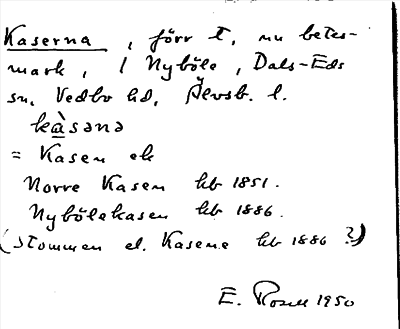 Kaserna, förr t, nu betes-
mark, i Nyböle, Dals-Eds
sn, Vedbo hd, Älvsb. l.
kàsənə
= Kasen ek
Norre Kasen hb 1851.
Nybölekasen hb 1886.
(Stommen el. Kasene hb 1886?)
E. Rosell 1950